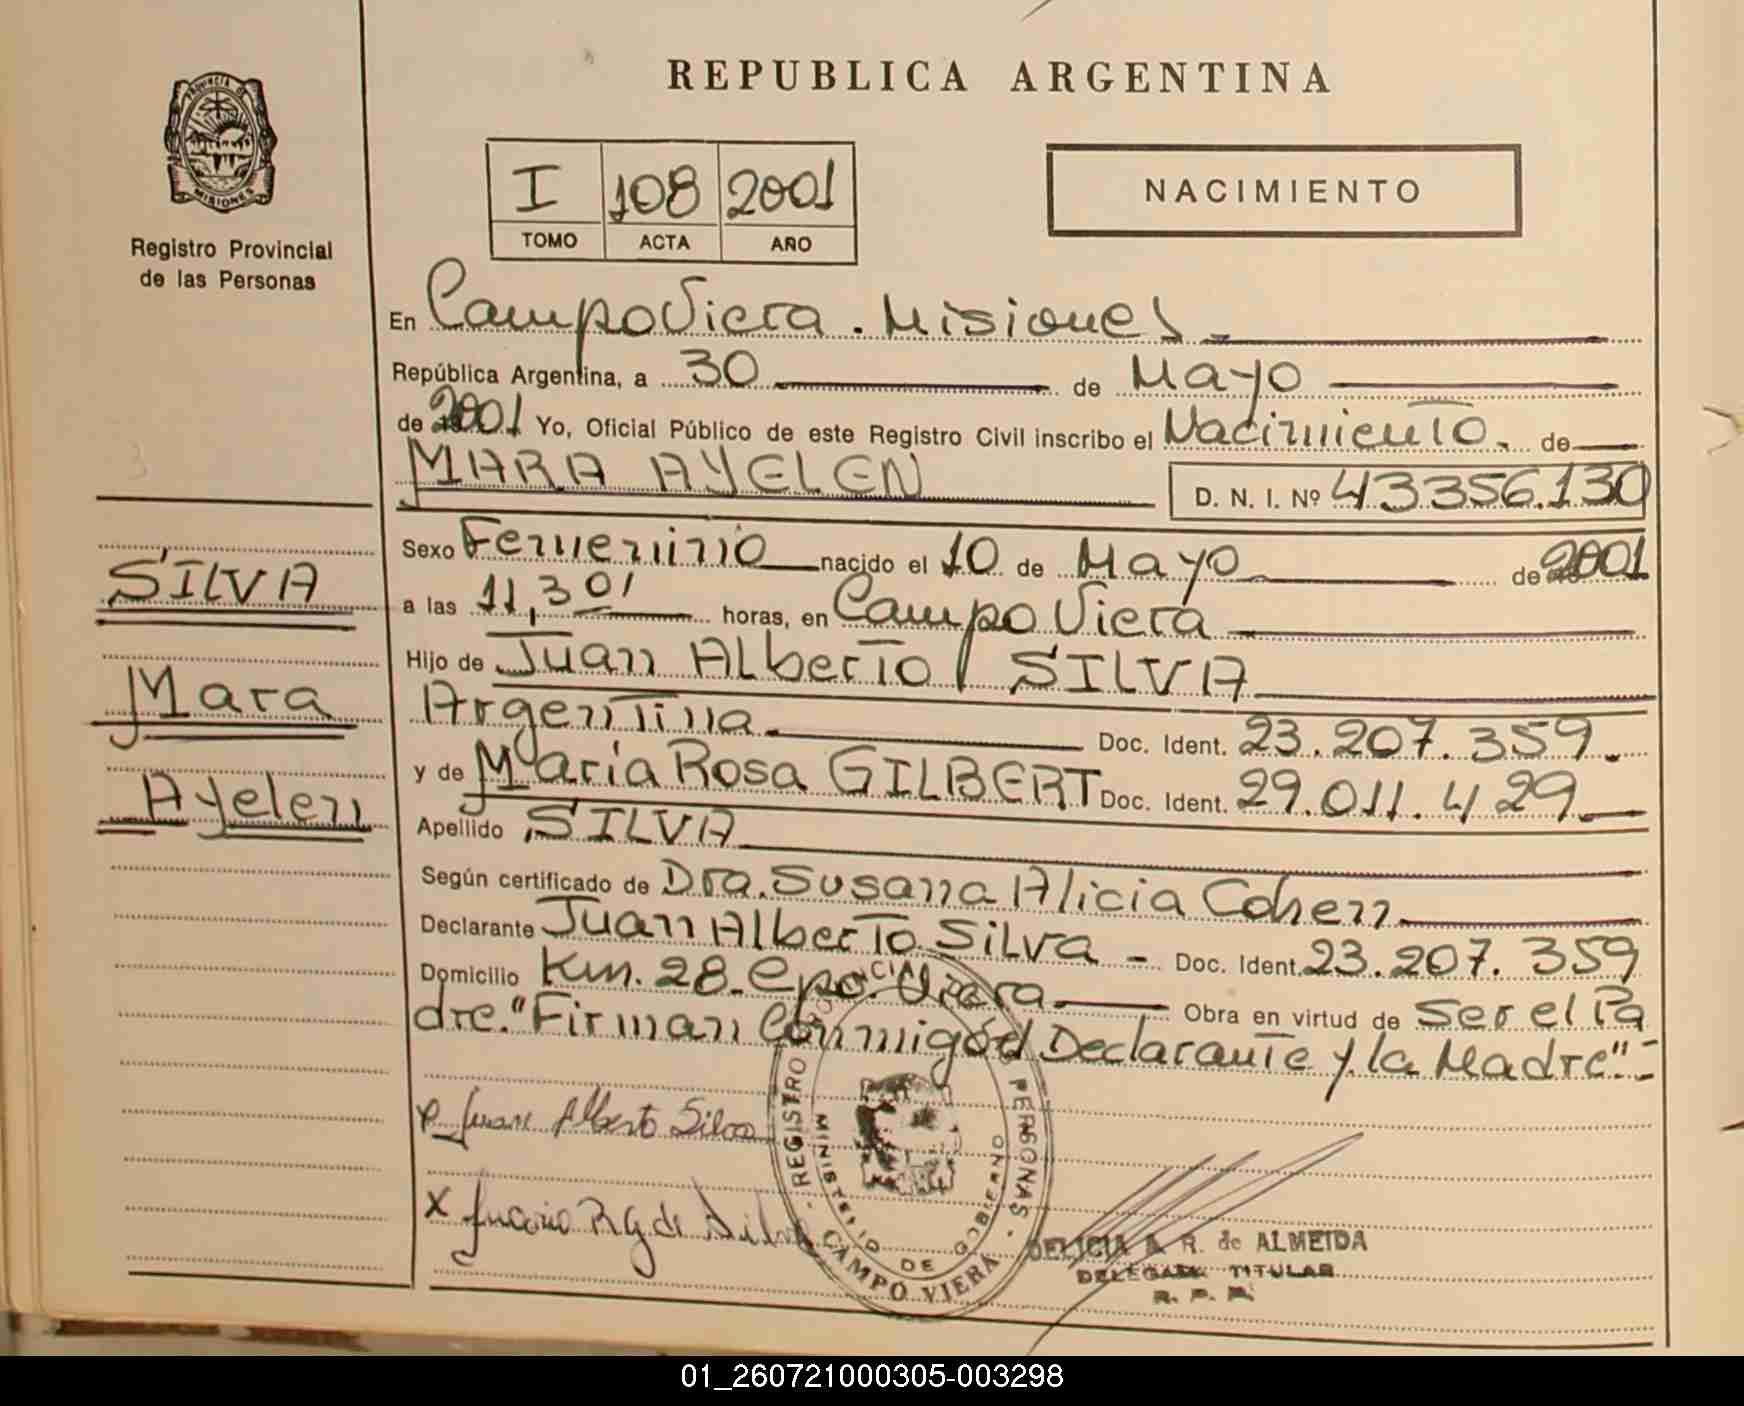 REPUBLICA ARGENTINA
PROVINCIA DE
MISIONES
Registro Provincial
de las Personas
I 108 2001
TOMO ACTA AÑO
NACIMIENTO
En Campo Viera. Misiones
República Argentina, a 30 de Mayo
de 2001 Yo, Oficial Público de este Registro Civil inscribo el Nacimiento. de
MARA AYELEN D. N. I. Nº 43356.130
SILVA
Mara
Ayelen
Sexo Femenino nacido el 10 de Mayo de 2001
a las 11,30' horas, en Campo Viera
Hijo de Juan Alberto SILVA
Argentina Doc. Ident. 23.207.359.
y de María Rosa GILBERT Doc. Ident. 29.011.429
Apellido SILVA
Según certificado de Dra. Susana Alicia Cohen
Declarante Juan Alberto Silva - Doc. Ident. 23.207.359
Domicilio Km. 28. Cpo. Viera Obra en virtud de Ser el Pa
dre. "Firman Conmigo el Declarante y la Madre".-
Juan Alberto Silva
X R G de Silva
REGISTRO PERSONAS
MINISTERIO DE GOBIERNO
CAMPO VIERA
DELICIA A. R. de ALMEIDA
DELEGADA TITULAR
R. P. P.
01_260721000305-003298